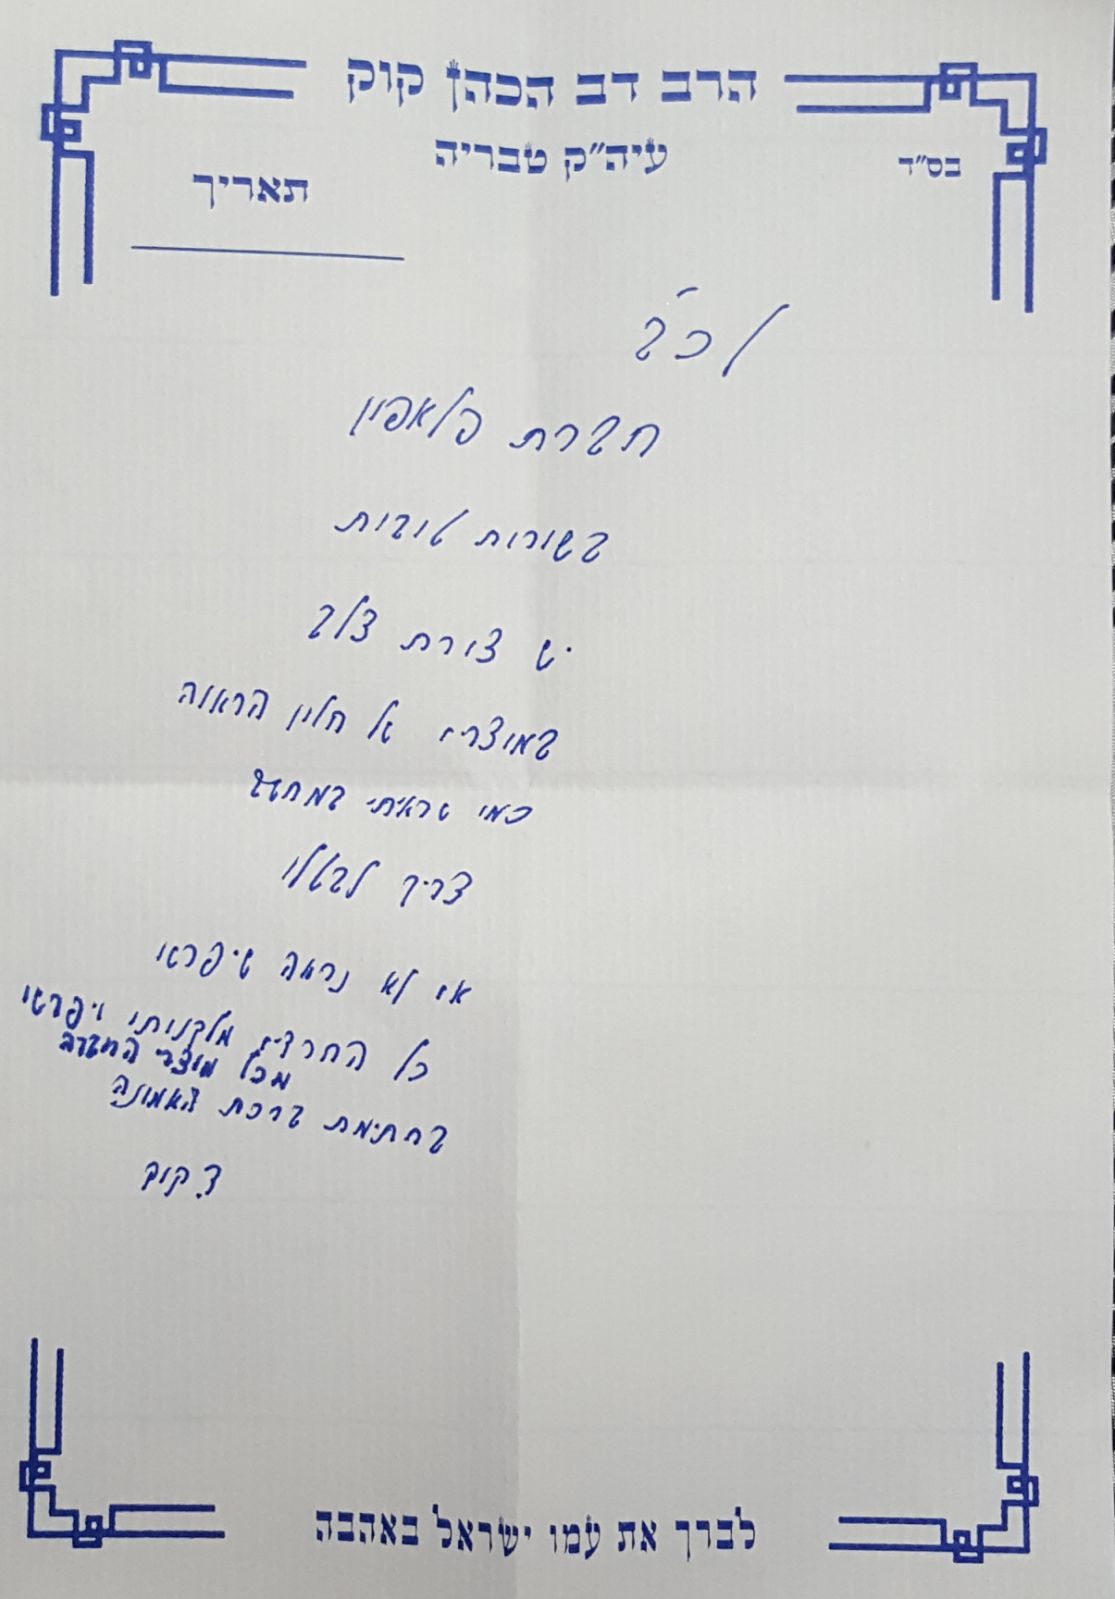 הרב דב הכהן קוק
עיה"ק טבריה
בס"ד
תאריך
לכ"ב
חברת פלאפון
בשורות טובות
יש צורת צלב
במוצרים של חלון הראוה
כמו שראיתי במחשב
צריך לבטלו
או לא נראה שיפרשו
כל החרדים מלקנותו ויפרשו
מכל מוצרי החברה
בחתימת ברכת האמונה
ד. קוק
לברך את עמו ישראל באהבה